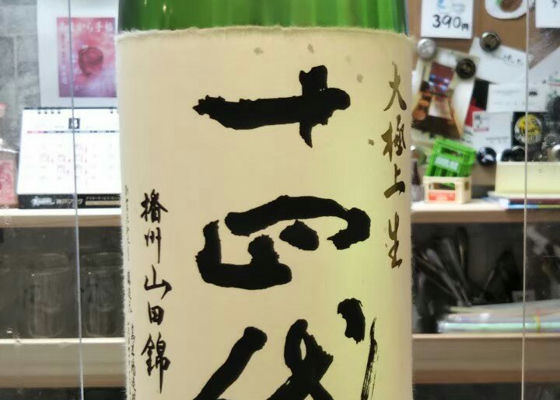 大極上生
十四代
播州山田錦
390円